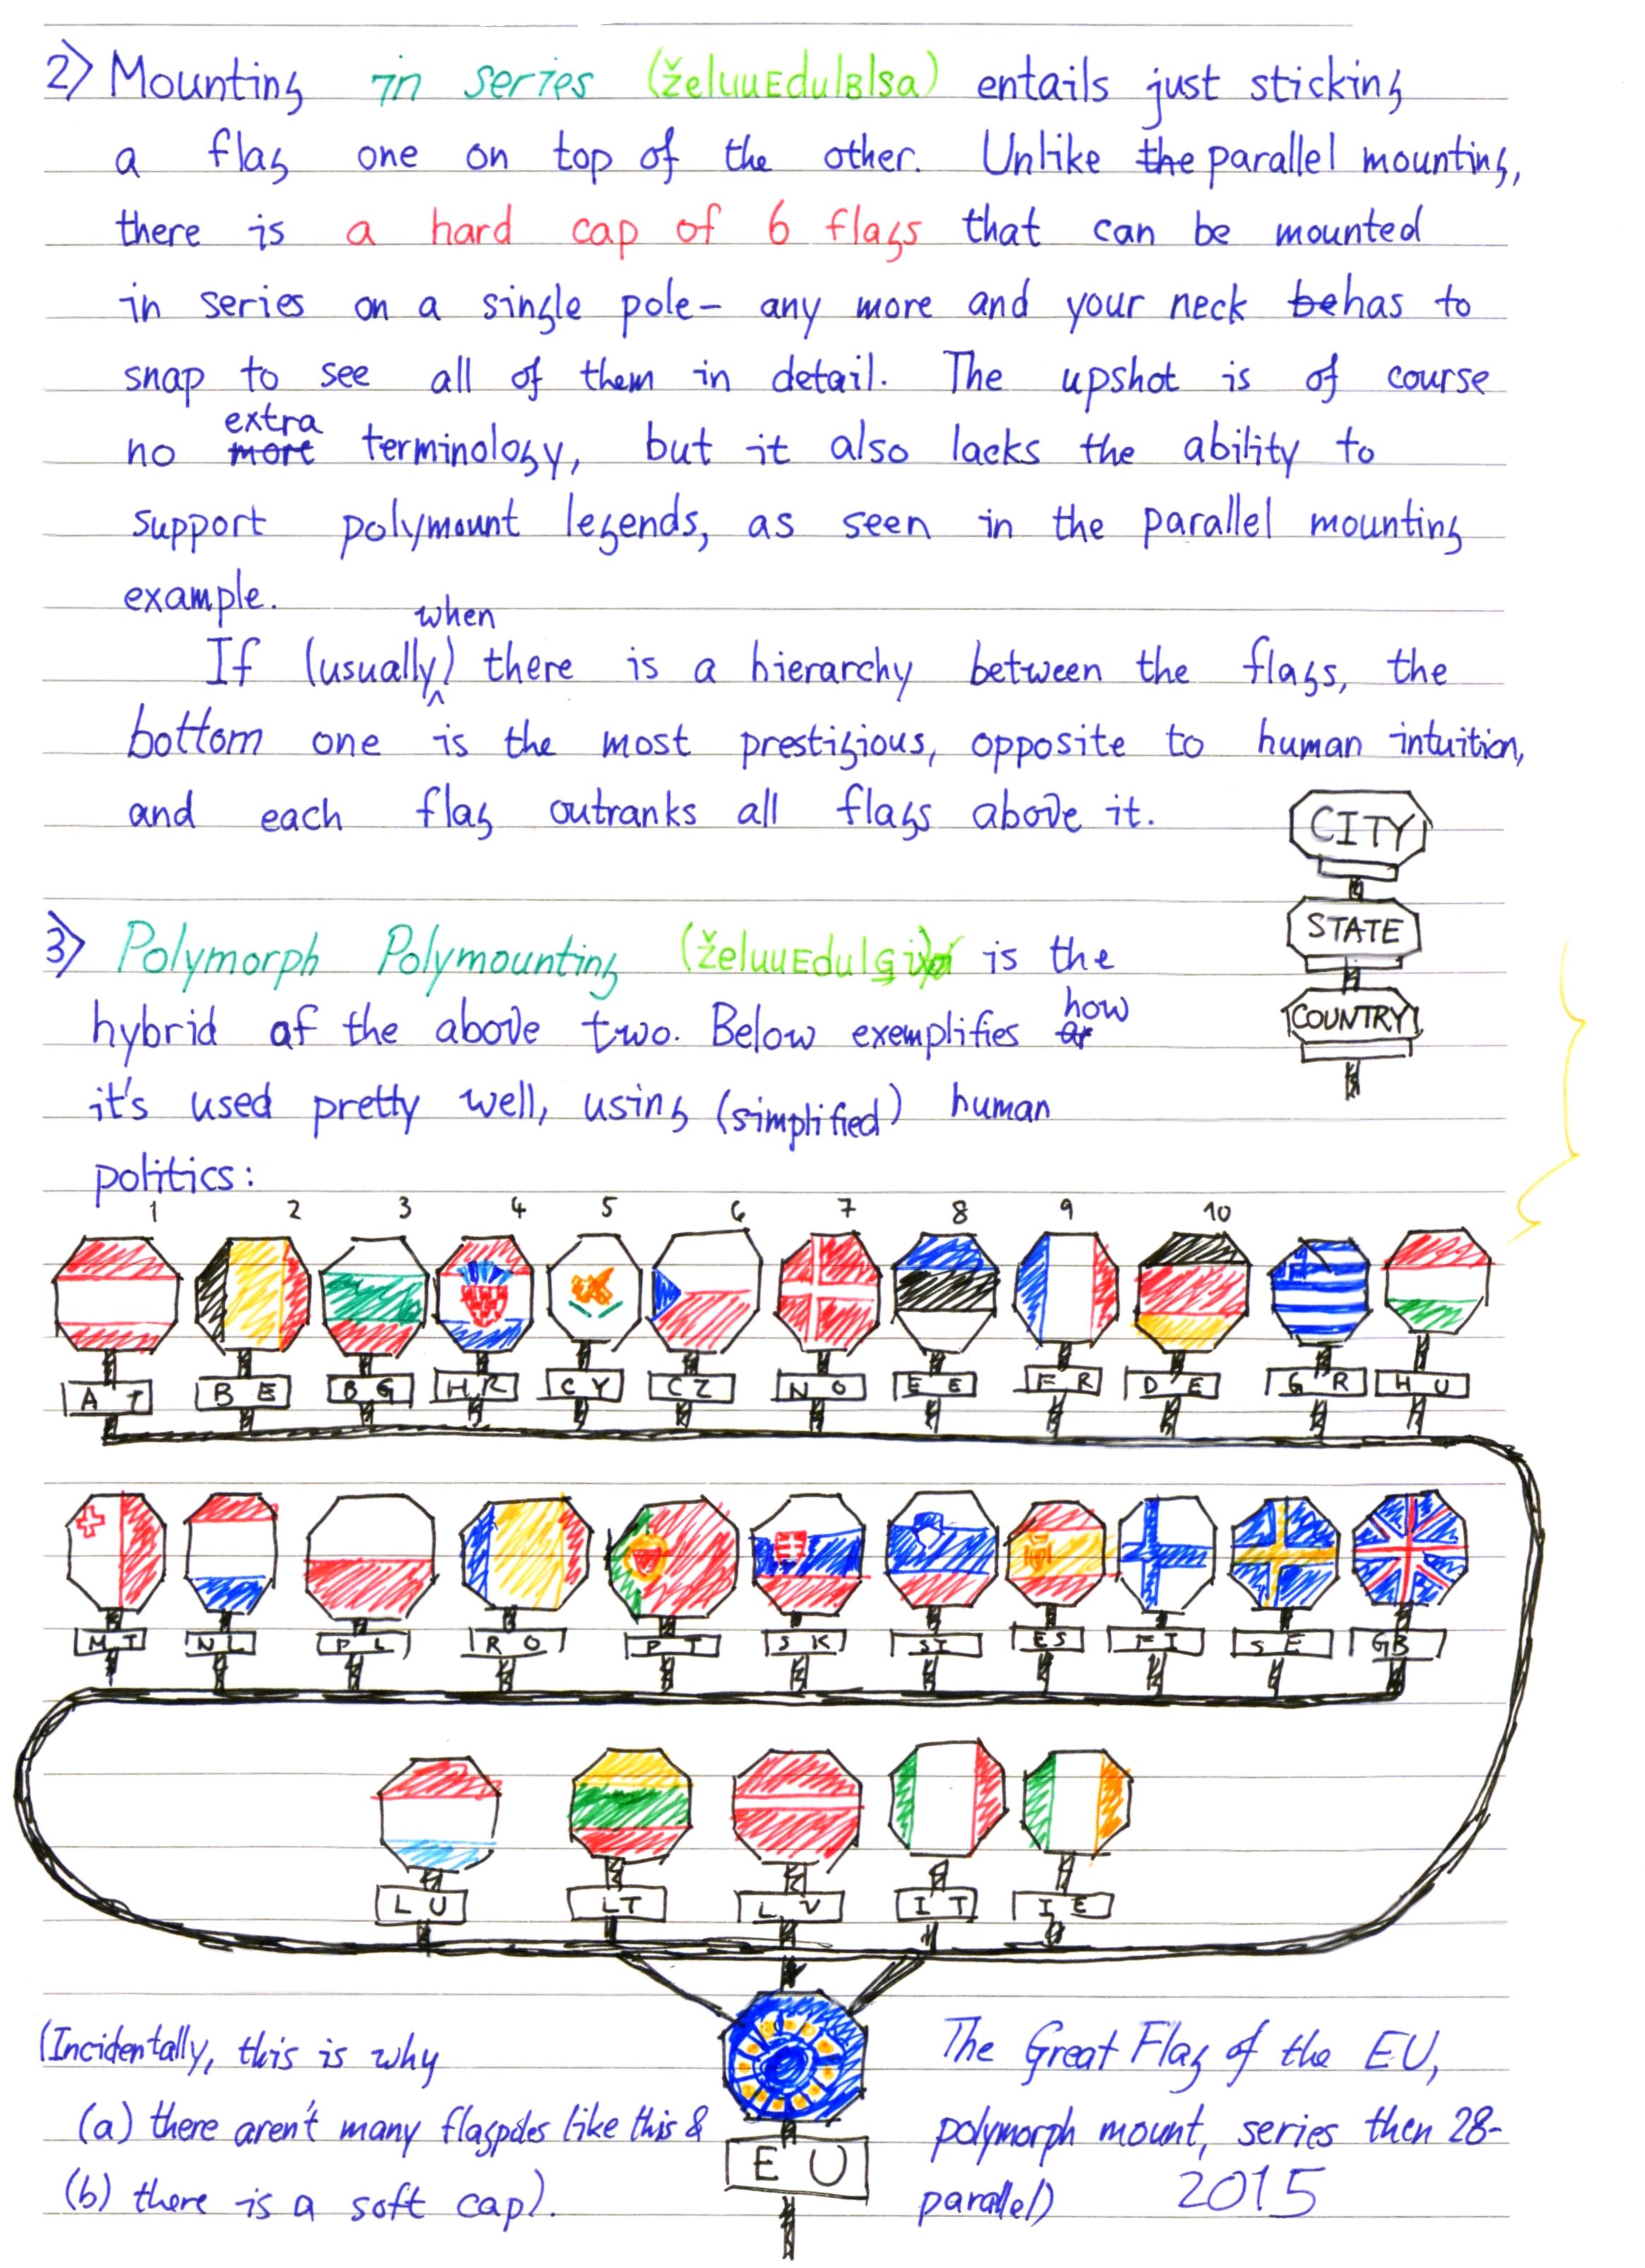 2) Mounting in series (želuuEdulBlsa) entails just sticking
a flag one on top of the other. Unlike the parallel mounting,
there is a hard cap of 6 flags that can be mounted
in series on a single pole- any more and your neck be has to
snap to see all of them in detail. The upshot is of course
extra
no more terminology, but it also lacks the ability to
support polymount legends, as seen in the parallel mounting
example.
when
If (usually) there is a hierarchy between the flags, the
bottom one is the most prestigious, opposite to human intuition,
and each flag outranks all flags above it.
CITY
STATE
COUNTRY
3) Polymorph Polymounting is the
how
hybrid of the above two. Below exemplifies
it's used pretty well, using (simplified) human
politics:
1 2 3 4 5 6 7 8 9 10
AT BE BG HR CY CZ NO EE FR DE GR HU
MT NL PL RO PT SK SI ES FI SE GB
LU LT LV IT IE
EU
(Incidentally, this is why
(a) there aren't many flagpoles like this &
(b) there is a soft cap).
The Great Flag of the EU,
polymorph mount, series then 28-
parallel) 2015